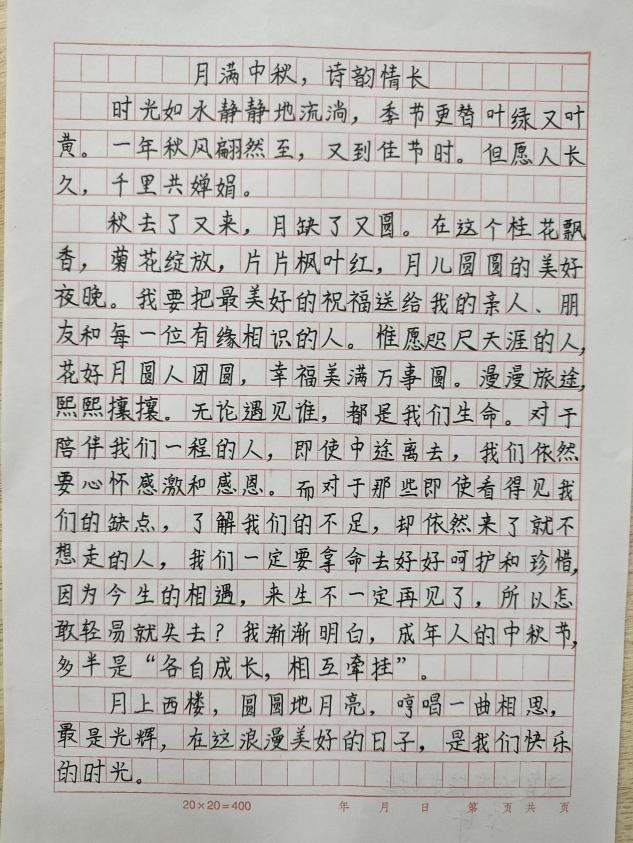 月满中秋，诗韵情长
时光如水静静地流淌，季节更替叶绿又叶
黄。一年秋风翩然至，又到佳节时。但愿人长
久，千里共婵娟。
秋去了又来，月缺了又圆。在这个桂花飘
香，菊花绽放，片片枫叶红，月儿圆圆的美好
夜晚。我要把最美好的祝福送给我的亲人、朋
友和每一位有缘相识的人。惟愿咫尺天涯的人，
花好月圆人团圆，幸福美满万事圆。漫漫旅途，
熙熙攘攘。无论遇见谁，都是我们生命。对于
陪伴我们一程的人，即使中途离去，我们依然
要心怀感激和感恩。而对于那些即使看得见我
们的缺点，了解我们的不足，却依然来了就不
想走的人，我们一定要拿命去好好呵护和珍惜，
因为今生的相遇，来生不一定再见了，所以怎
敢轻易就失去？我渐渐明白，成年人的中秋节，
多半是“各自成长，相互牵挂”。
月上西楼，圆圆地月亮，哼唱一曲相思，
最是光辉，在这浪漫美好的日子，是我们快乐
的时光。
20×20=400 年 月 日 第 页 共 页